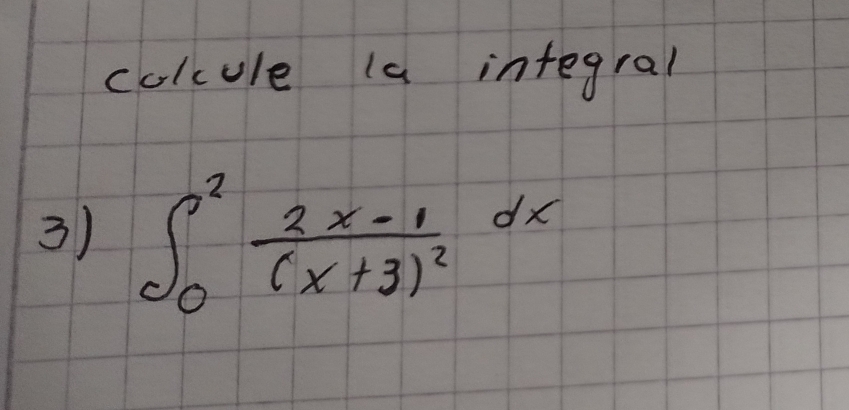 calcule la integral
3) ∫₀² (2x-1)/(x+3)² dx